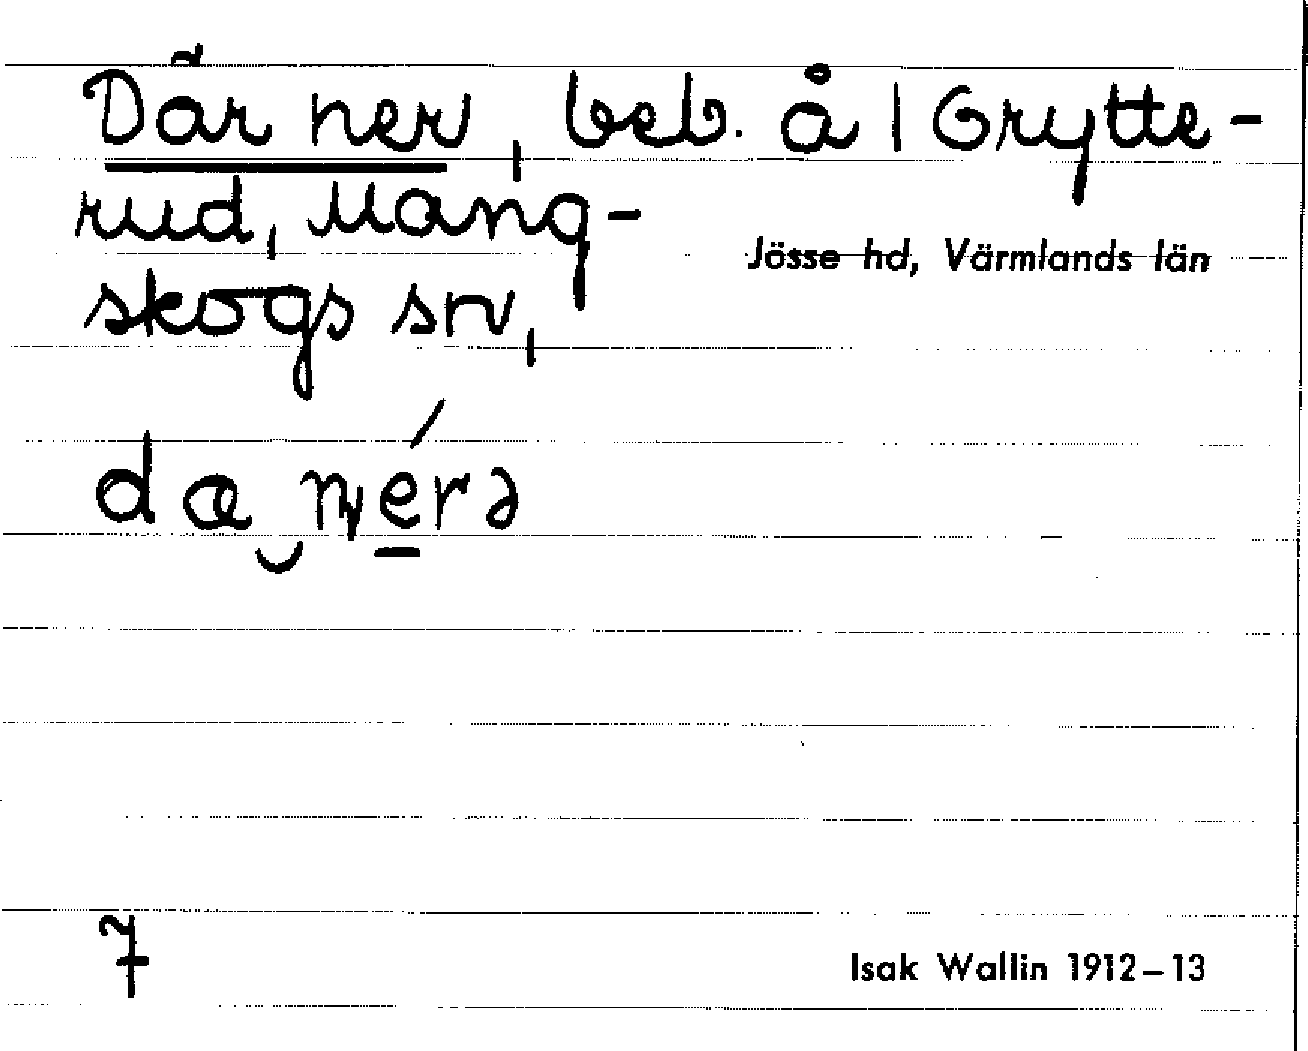 Där ner, beb. å 1 Grytte-
rud, Mang-
skogs sn,
Jösse hd, Värmlands län
dæ‿nérə
7
Isak Wallin 1912–13